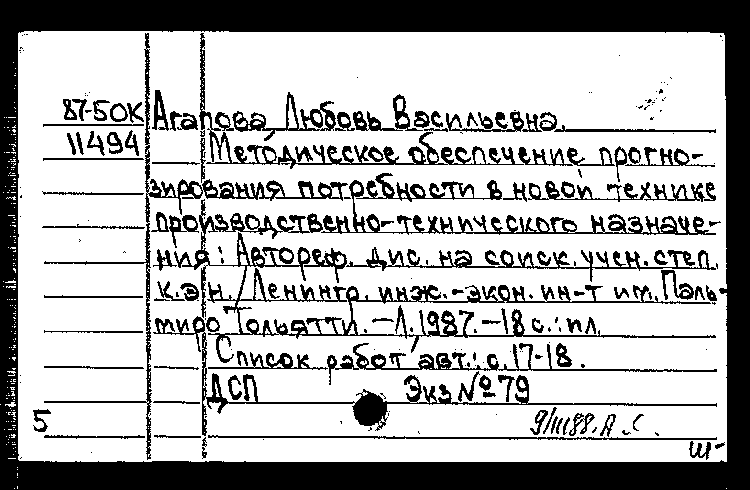 87-5ОК Агапова Любовь Васильевна.
11494 Методическое обеспечение прогно-
зирования потребности в новой технике
производственно-технического назначе-
ния: Автореф. дис. на соиск. учен. степ.
к.э.н. / Ленингр. инж.-экон. ин-т им. Паль-
миро Тольятти. - Л. 1987. - 18 с.: ил.
Список работ авт.: с. 17-18.
ДСП Экз № 79
5 9/III88. А.С.
Ш-